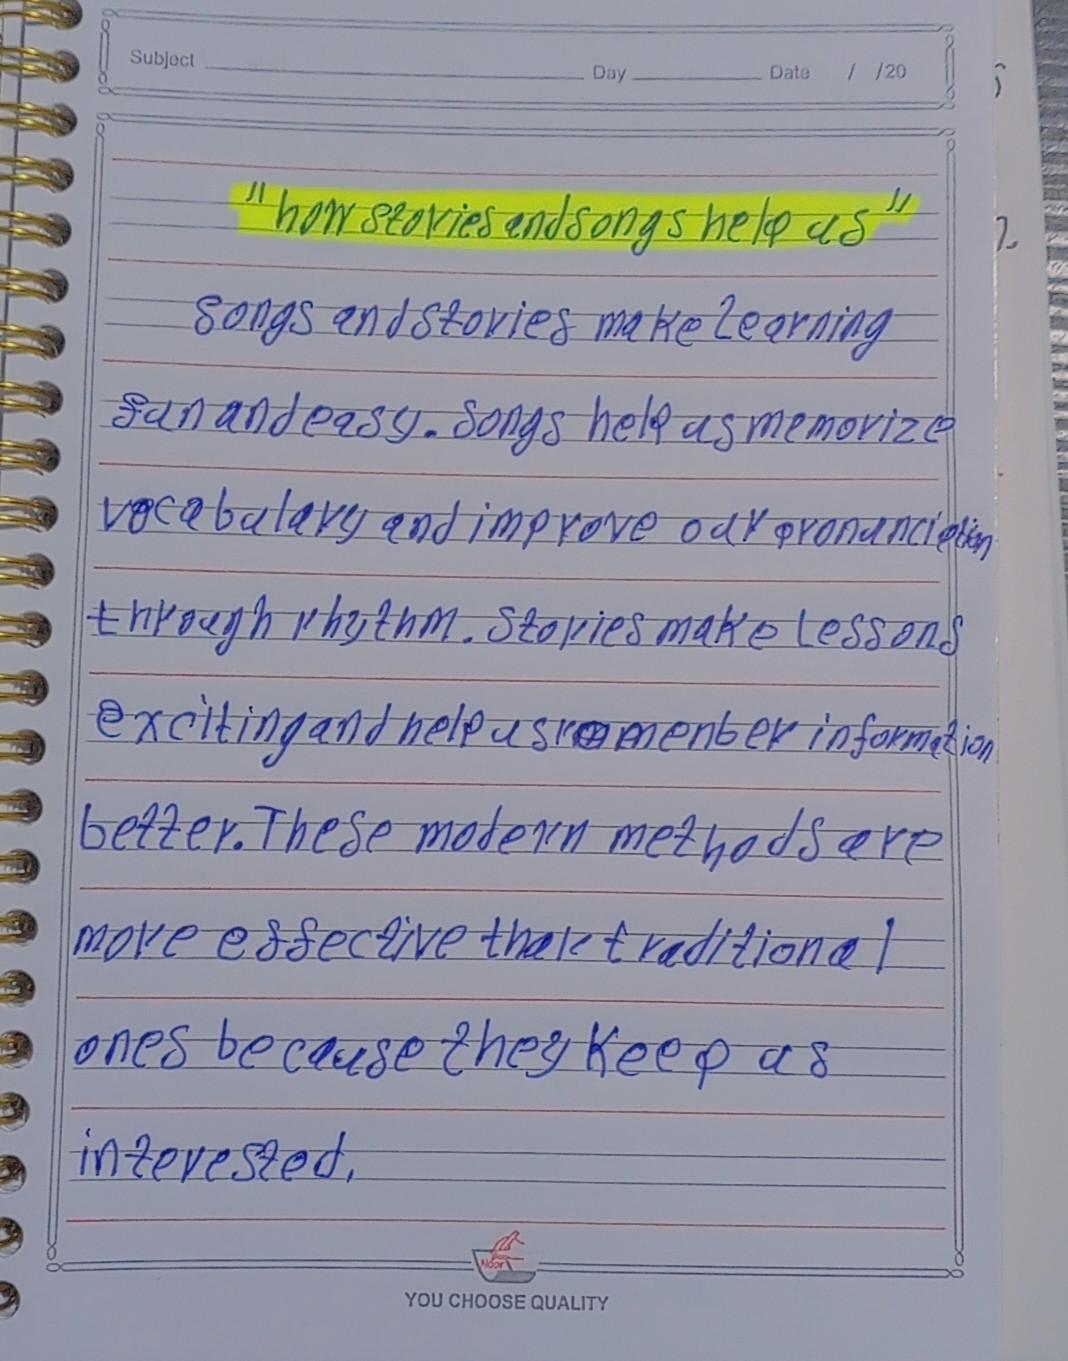 Subject Day Date / /20
"how stories and songs help us"
Songs and stories make Learning
fun and easy. Songs help us memorize
vocabulary and improve our pronunciation
through rhythm. Stories make Lessons
exciting and help us remember information
better. These modern methods are
more effective than traditional
ones because they Keep us
interested.
Noor
YOU CHOOSE QUALITY